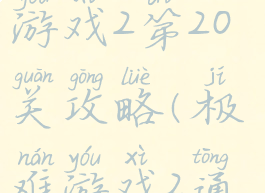 游戏2第20
guān gōng lüè jí
关攻略(极
nán yóu xì tōng
难游戏2通